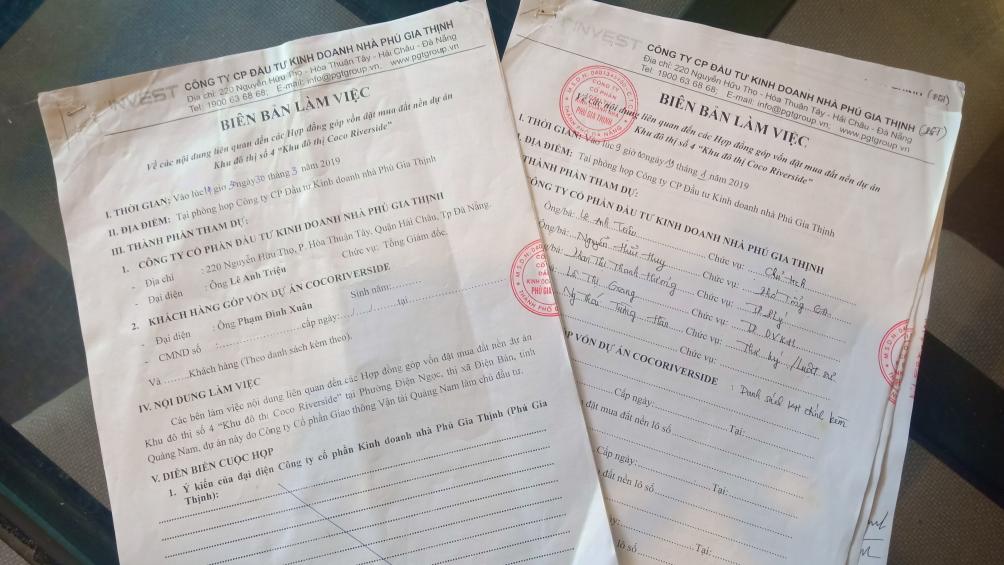 INVEST
CÔNG TY CP ĐẦU TƯ KINH DOANH NHÀ PHÚ GIA THỊNH
Địa chỉ: 220 Nguyễn Hữu Thọ - Hòa Thuận Tây - Hải Châu - Đà Nẵng
Tel: 1900 63 68 68; E-mail: info@pgtgroup.vn, www.pgtgroup.vn
BIÊN BẢN LÀM VIỆC
Về các nội dung liên quan đến các Hợp đồng góp vốn đặt mua đất nền dự án
Khu đô thị số 4 "Khu đô thị Coco Riverside"
I. THỜI GIAN: Vào lúc giờ ngày 30 tháng 3 năm 2019
II. ĐỊA ĐIỂM: Tại phòng họp Công ty CP Đầu tư Kinh doanh nhà Phú Gia Thịnh
III. THÀNH PHẦN THAM DỰ:
1. CÔNG TY CỔ PHẦN ĐẦU TƯ KINH DOANH NHÀ PHÚ GIA THỊNH
- Địa chỉ : 220 Nguyễn Hữu Thọ, P. Hòa Thuận Tây, Quận Hải Châu, Tp Đà Nẵng.
- Đại diện : Ông Lê Anh Triệu Chức vụ: Tổng Giám đốc.
2. KHÁCH HÀNG GÓP VỐN DỰ ÁN COCORIVERSIDE
- Đại diện : Ông Phạm Đình Xuân Sinh năm:
- CMND số : cấp ngày: / / tại
Và Khách hàng (Theo danh sách kèm theo).
IV. NỘI DUNG LÀM VIỆC
Các bên làm việc nội dung liên quan đến các Hợp đồng góp vốn đặt mua đất nền dự án
Khu đô thị số 4 "Khu đô thị Coco Riverside" tại Phường Điện Ngọc, thị xã Điện Bàn, tỉnh
Quảng Nam, dự án này do Công ty Cổ phần Giao thông Vận tải Quảng Nam làm chủ đầu tư.
V. DIỄN BIẾN CUỘC HỌP
1. Ý kiến của đại diện Công ty cổ phần Kinh doanh nhà Phú Gia (Phú Gia
Thịnh):
INVEST
CÔNG TY CP ĐẦU TƯ KINH DOANH NHÀ PHÚ GIA THỊNH
Địa chỉ: 220 Nguyễn Hữu Thọ - Hòa Thuận Tây - Hải Châu - Đà Nẵng
Tel: 1900 63 68 68; E-mail: info@pgtgroup.vn; www.pgtgroup.vn
BIÊN BẢN LÀM VIỆC
Về các nội dung liên quan đến các Hợp đồng góp vốn đặt mua đất nền dự án
Khu đô thị số 4 "Khu đô thị Coco Riverside"
I. THỜI GIAN: Vào lúc 9 giờ ngày 19 tháng năm 2019
ĐỊA ĐIỂM: Tại phòng họp Công ty CP Đầu tư Kinh doanh nhà Phú Gia Thịnh
THÀNH PHẦN THAM DỰ:
CÔNG TY CỔ PHẦN ĐẦU TƯ KINH DOANH NHÀ PHÚ GIA THỊNH
Ông/bà: Lê Anh Triệu Chức vụ: Chủ tịch
Ông/bà: Nguyễn Thức Huy Chức vụ: Phó Tổng GĐ
/bà: Phan Thị Thanh Hương Chức vụ:
Lê Thị Giang Chức vụ:
Chức vụ: Thư ký / Luật sư
VỐN DỰ ÁN COCORIVERSIDE : Danh sách KH đính kèm
Cấp ngày: Tại:
đặt mua đất nền lô số
Cấp ngày: Tại:
đất nền lô số
Cấp ngày: Tại:
lô số